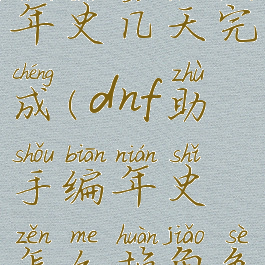 年史几天完
chéng zhù
成(dnf助
shǒu biān nián shǐ
手编年史
zěn me huàn jiǎo sè
怎么换角色